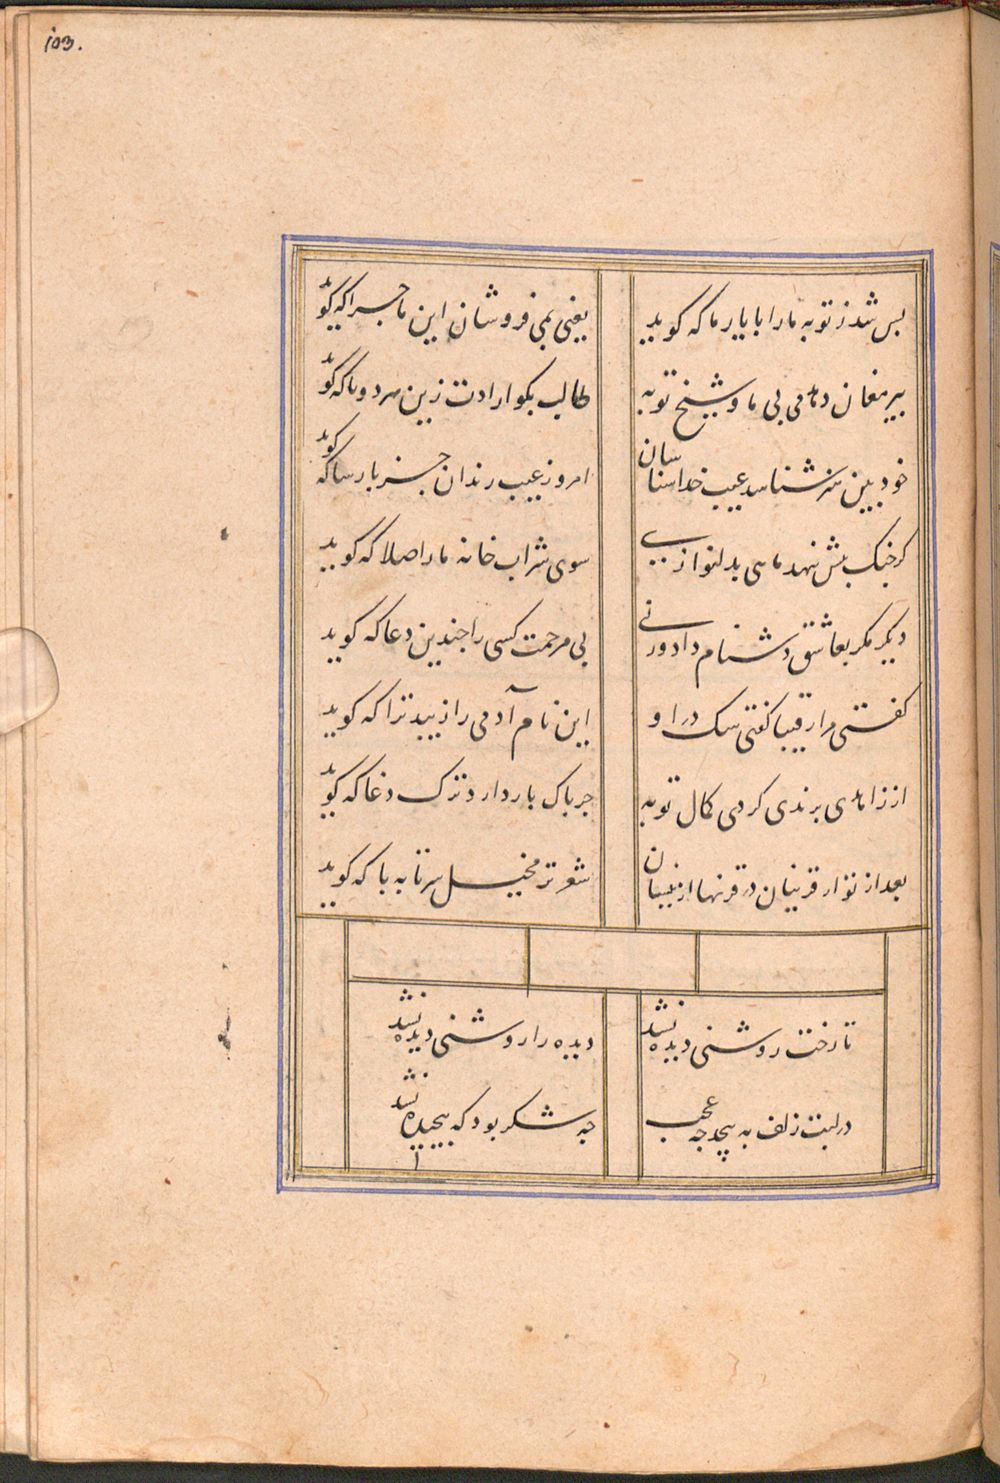 103.
بس شد ز توبه ما را با یار ما که گوید
یعنی بمی فروشان این ماجرا که گوید
پیر مغان دهد می بی ما و شیخ توبه
طالب بگو ارادت زین هر دو تا که گوید
خودبین نمی شناسد عیب خداشناسان
امروز عیب رندان جز پارسا که گوید
گر چنگ پیش ننهد پایی بدلنوازی
سوی شراب خانه ما را صلا که گوید
دیگر مگر بعاشق دشنام داد ورنی
بی مرحمت کسی را چندین دعا که گوید
گفتی مرا رقیبا گفتی سک در او
این نام آدمی را زیبد ترا که گوید
از زاهدی برندی کردی کمال توبه
چر پاک باز دارد ترک دغا که گوید
بعد از تو از قرینان در قرنها ازینسان
شعر تر مخیل سر تا به پا که گوید
تا رخت روشنی دیده نشد
دیده را روشنی دیده نشد
در لبت زلف به پیچد چه عجب
چه شکر بود که پیچیده نشد